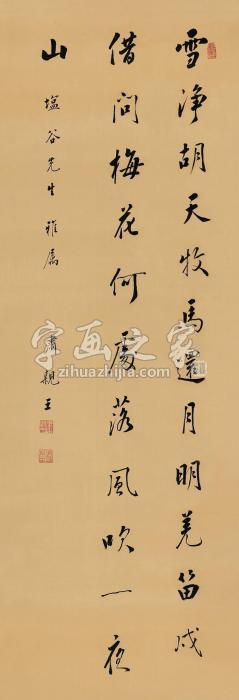 雪净胡天牧馬還月明羌笛戍
借问梅花何處落風吹一夜
山
塩谷先生雅属
肅親王
字画之家
www.zihuazhijia.com